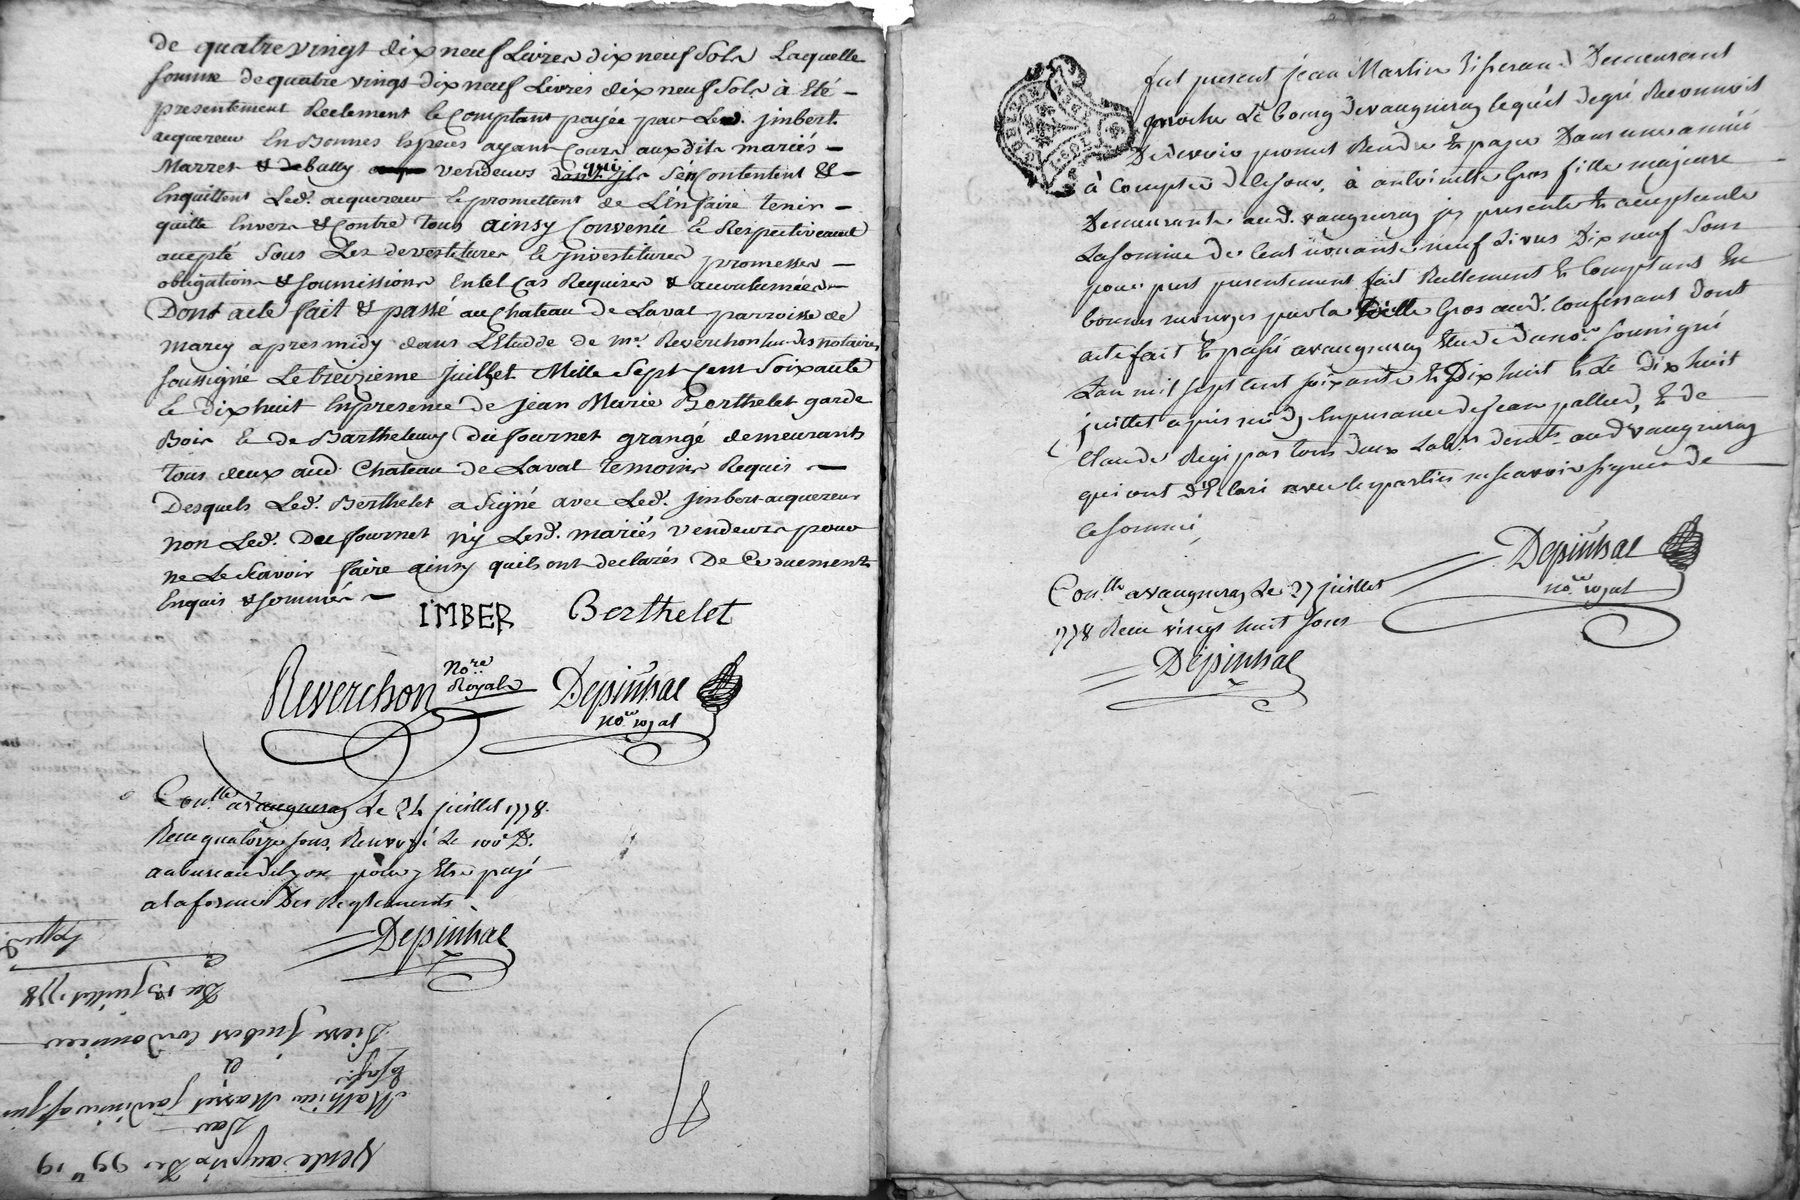 de quatre vingt dix neuf Livres dix neuf Sols Laquelle
somme de quatre vingt dix neuf Livres dix neuf Sols à Eté -
presentement Réelement & Comptant payée par Led. jmbert
acquereur En Bonnes Espèces ayant Cours auxdits mariés -
Marret & de bally vendeurs qui S'en Contentent & -
Enquittent Led. acquereur & promettent de L'én faire tenir -
quitte Envers & Contre tous ainsy Convenû & Respectivement
accepté Sous Les devestitures & jnvestitures promesses -
obligations & soumissions En tel Cas Requises & accoutumées -
Dont acte fait & passé au Chateau de Laval parroisse de
marcy apres midy dans L'Etudde de me. Reverchon Lun des notaires
soussigné Le treizieme juillet Mille Sept Cent Soixante
& dix huit En presence de jean Marie Berthelet garde
Bois & de Barthelemy du fournet grangé demeurants
tous deux aud. Chateau de Laval temoins Requis -
Desquels Led. Berthelet a Signé avec Led. jmbert acquereur
non Led. Du fournet ny Lesd. mariés vendeurs pour
ne Le Scavoir faire ainsy quils ont declarés De Ce duement
Enquis & sommés -
IMBER Berthelet
Reverchon Nore. Royal Depinhac
nore. royal
Conlle. a vaugneray Le 24 juillet 1778.
Recu quatorze sous, Renvoyé Le 100e D.
au bureau de Lyon pour y Etre payé
a la forme Des Reglements.
Depinhac
Du 13 juillet 1778
Pierre Jmbert Cordonnier
a
Mathieu Marret
par
Vente au prix De 99 # 19
fut present jean Martin Tisserand Demeurant
parroisse & bourg de vaugneray lequel de gré Reconnoit
De devoir promet Rendre & payer Dans une année
à Compter de Ce jour, à antoinette Gros fille majeure
Demeurante aud. vaugneray jcy presente & acceptante
La somme de Cent nonante neuf Livres Dix neuf Sous
pour prest presentement fait Reellement & Comptant En
bonnes monoyes par la ditte Gros aud. Confessant dont
acte fait & passé a vaugneray Etude du nore. soussigné
L'an mil sept cent soixante & Dix huit & Le Dix huit
juillet apres midy En presence de jean pallud, & de
Claude tous deux Labrs. demts. aud. vaugneray
qui ont declaré avec les parties ne scavoir signer de
Ce sommé,
Depinhac
nore. royal
Conlle. a vaugneray Le 27 juillet
1778 Recu vingt huit Sous
Depinhac